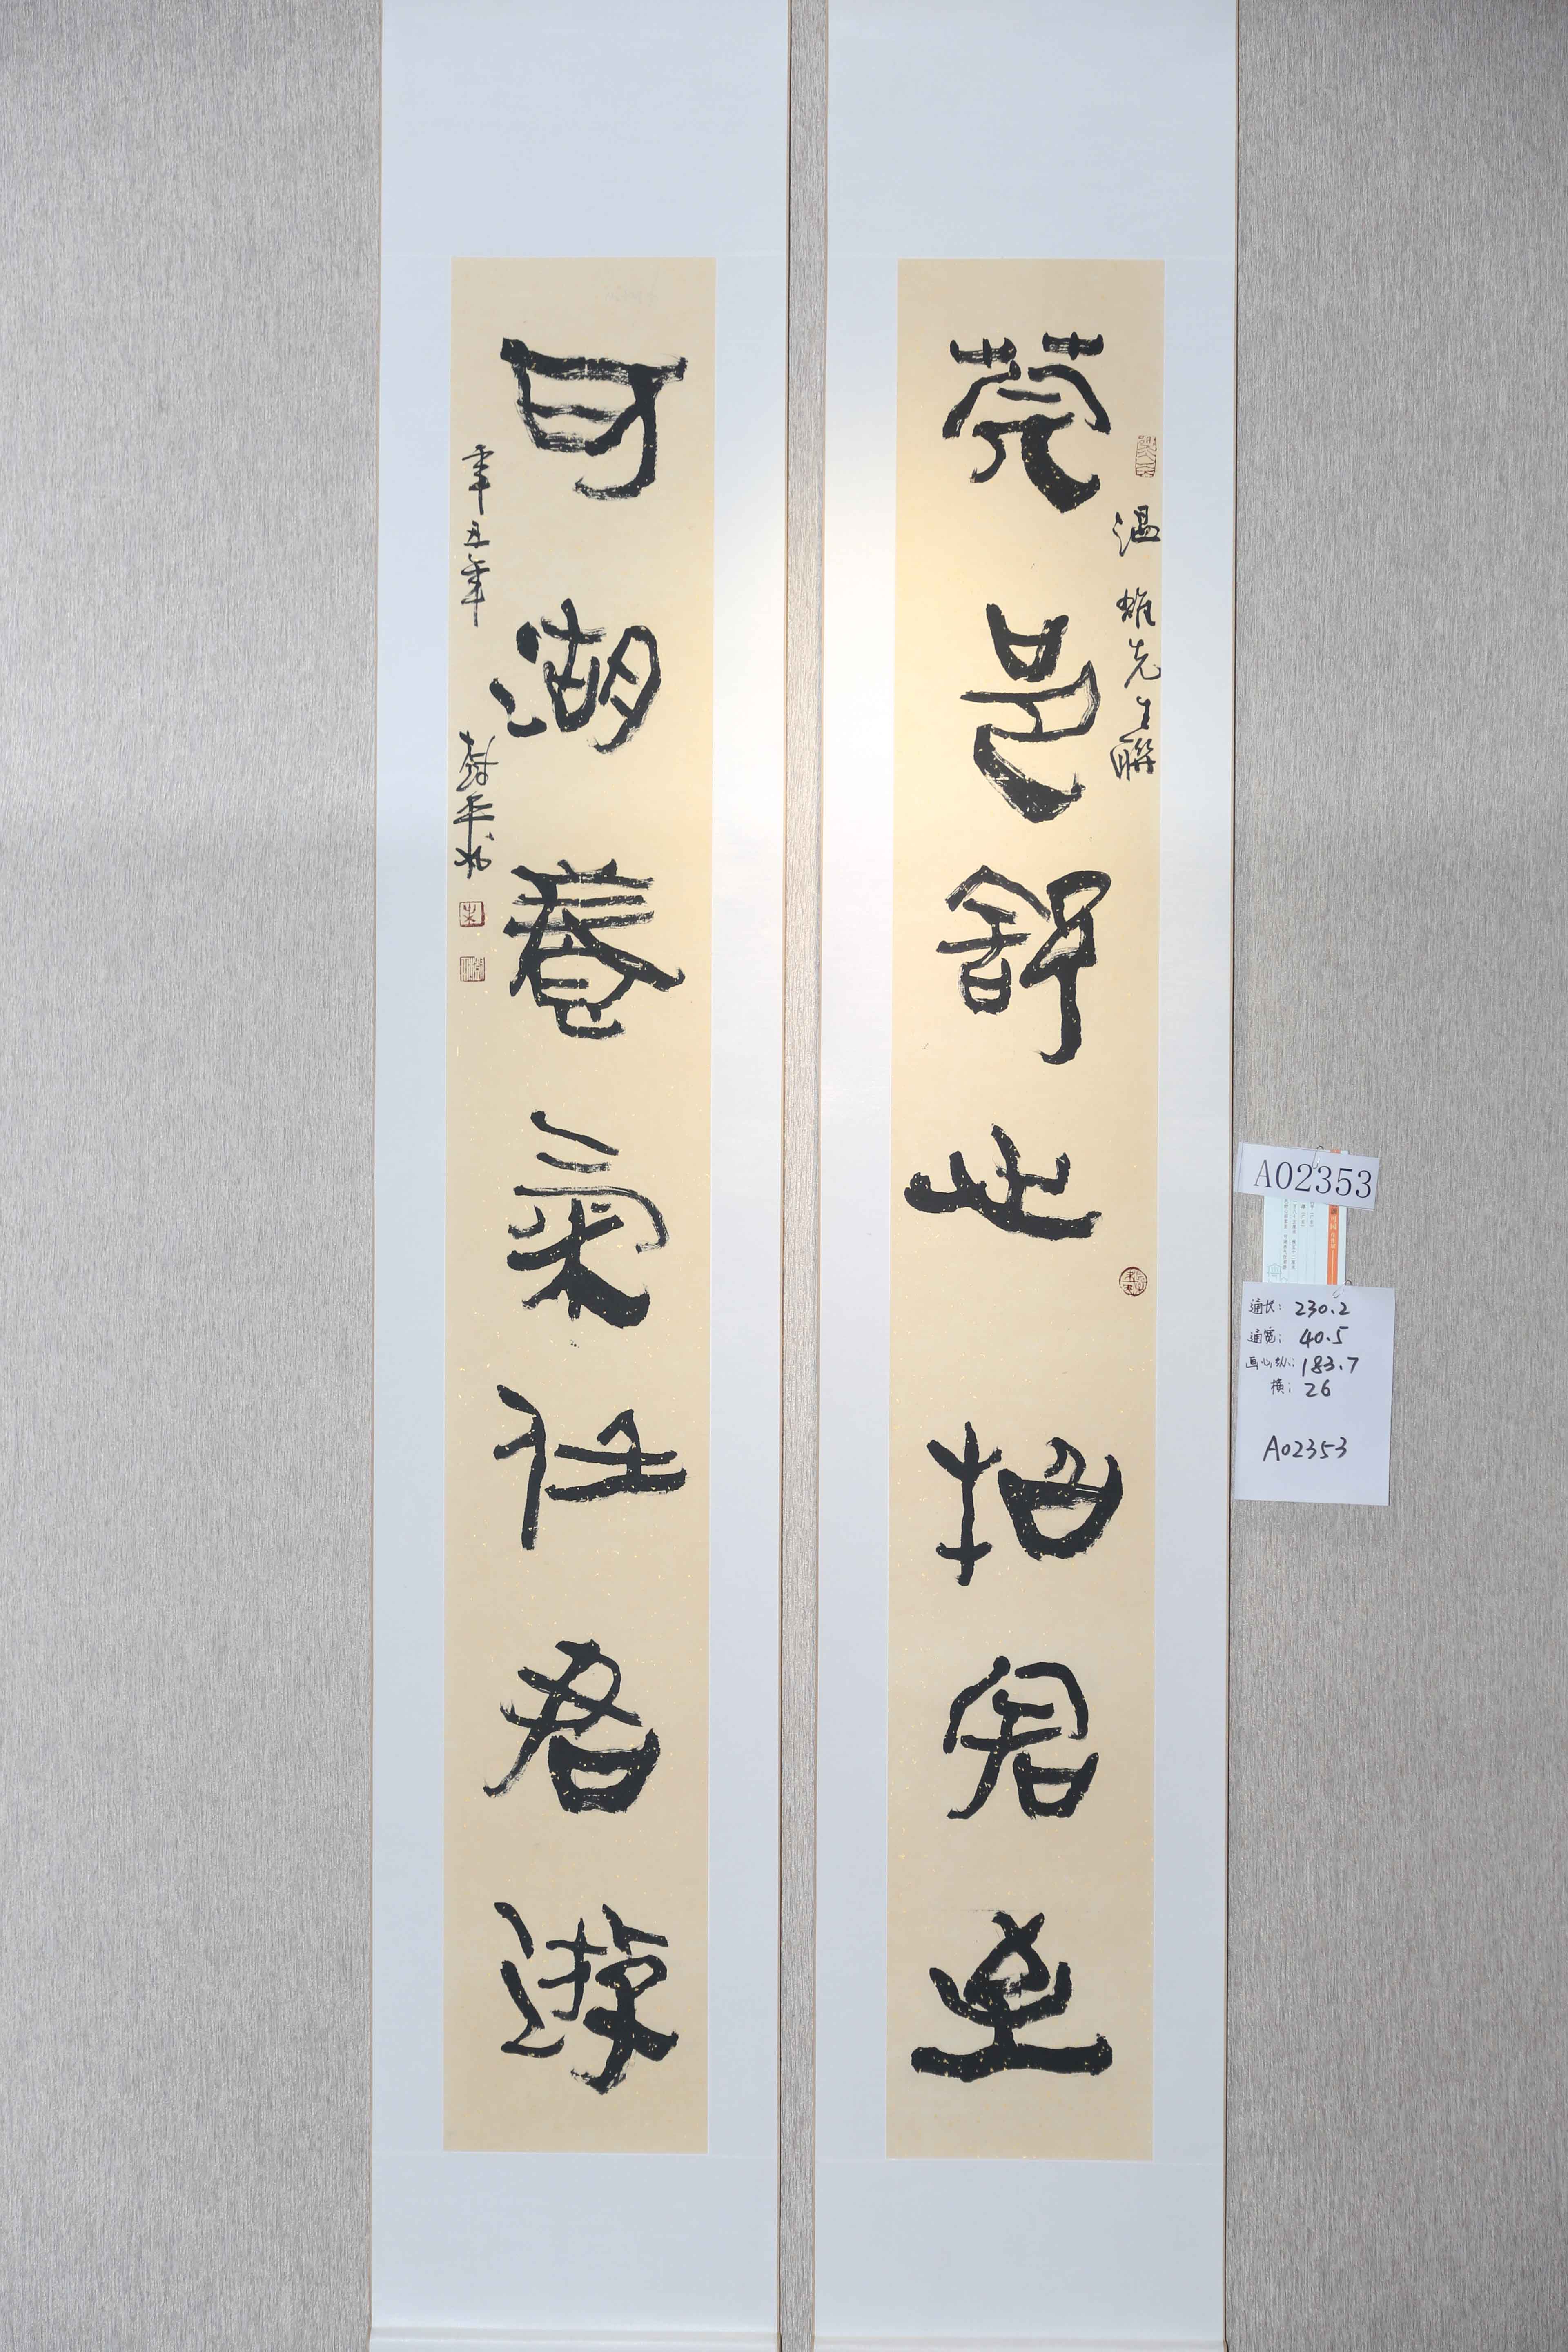 莞邑舒心招客至
溫雄先生聯
可湖養氣任君游
辛丑年
樹平書
A02353
通长：230.2
通宽：40.5
画心纵：183.7
横：26
A02353